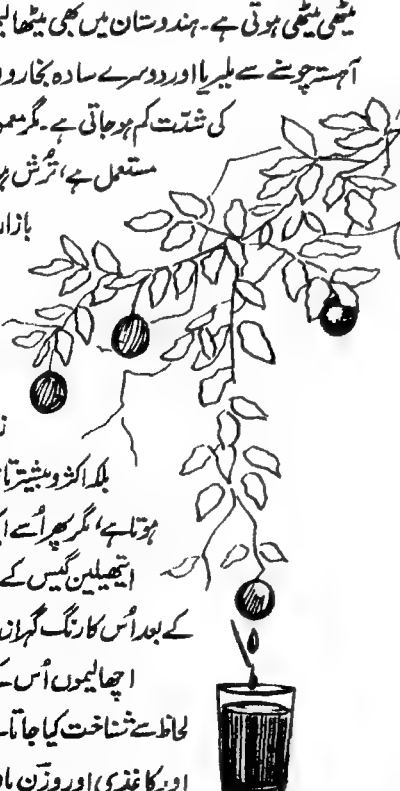 میٹھی میٹھی ہوتی ہے۔ ہندوستان میں بھی میٹھا
آہستہ چوسنے سے ملیریا اور دوسرے سادہ بخارو
کی شدّت کم ہوجاتی ہے۔ مگر معمو
مستعمل ہے، تُرش
بازا
بلکہ اکثر و بیشتر
ہوتا ہے، مگر پھر اُسے
ایتھیلین گیس کے
کے بعد اُس کا رنگ گہرا
اچھا لیموں اُس
لحاظ سے شناخت کیا جاتا
اور کاغذی اور وزن